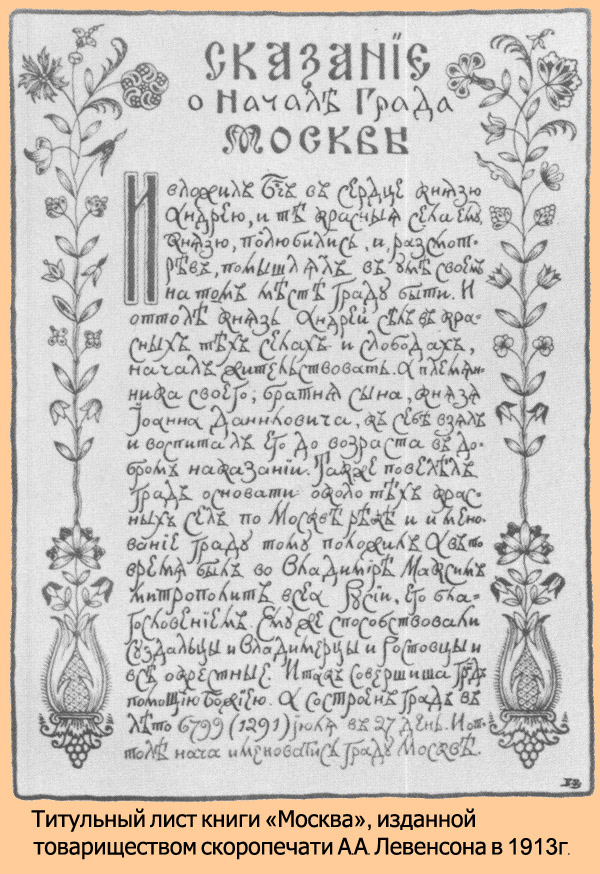 СКАЗАНЇЕ
о Началѣ Града
МОСКВЫ
И вложилъ Бг҃ъ въ сердце князю
Андрею, и тѣ красныя села ему,
князю, полюбились, и, разсмот-
рѣвъ, помышлялъ въ умѣ своемъ
на томъ мѣстѣ Граду быти. И
оттолѣ князь Андрей сѣлъ въ кра-
сныхъ тѣхъ селахъ и слободахъ,
началъ жительствовать. А племян-
ника своего, братня сына, князя
Їоанна Даниловича, къ себѣ взялъ
и воспиталъ его до возраста въ до-
бромъ наказанїи. Также повелѣлъ
Градъ основати около тѣхъ крас-
ныхъ селъ по Москвѣ рѣкѣ и имено-
ванїе Граду тому положилъ А въ то
время былъ во Владимїрѣ Максимъ
митрополитъ всеа Русїи, его бла-
гословенїемъ. Ему же способствовали
суздальцы и Владимерцы и Ростовцы и
всѣ окрестные. И такъ совершиша Градъ
помощїю Божїею. А состроенъ Градъ въ
лѣто 6799 (1291) їюля въ 27 день. И от-
толѣ нача именоватись граду Москвѣ.
Титульный лист книги «Москва», изданной
товариществом скоропечати А.А. Левенсона в 1913г.